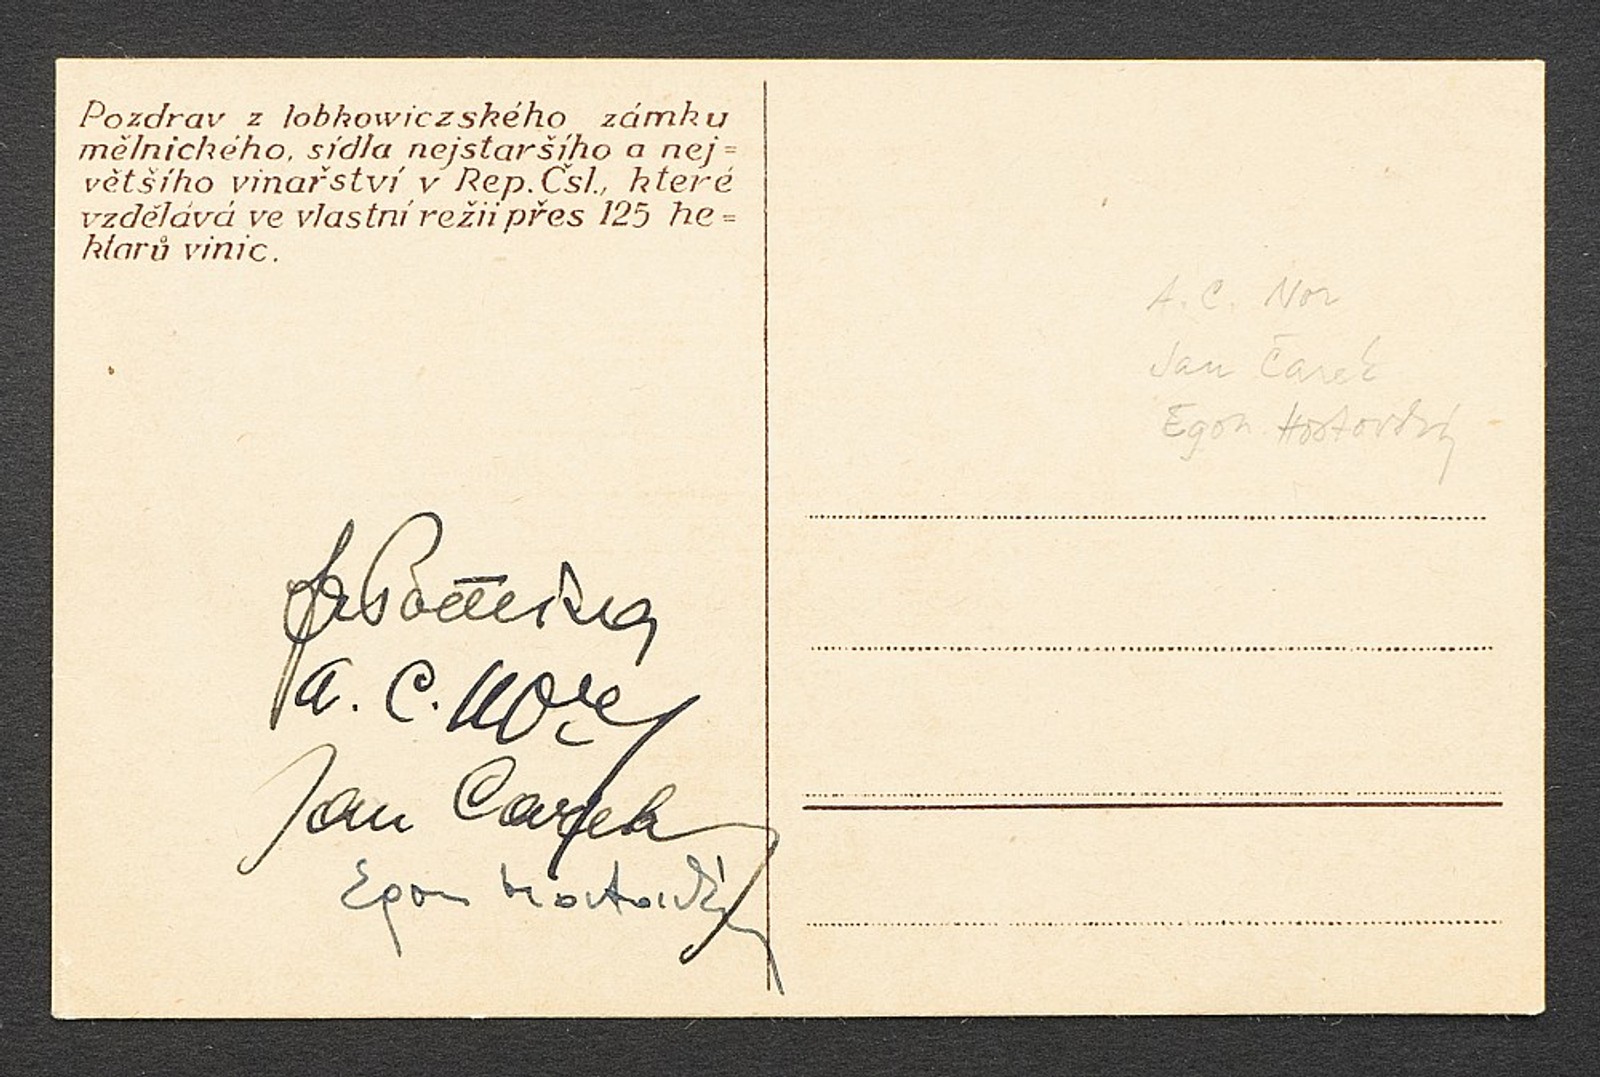 Pozdrav z lobkowiczského zámku
mělnického, sídla nejstaršího a nej=
většího vinařství v Rep. Čsl., které
vzdělává ve vlastní režii přes 125 he=
ktarů vinic.
A. C. Nor
Jan Čarek
Egon Hostovský
A. C. Nor
Jan Carek
Egon Hostovský